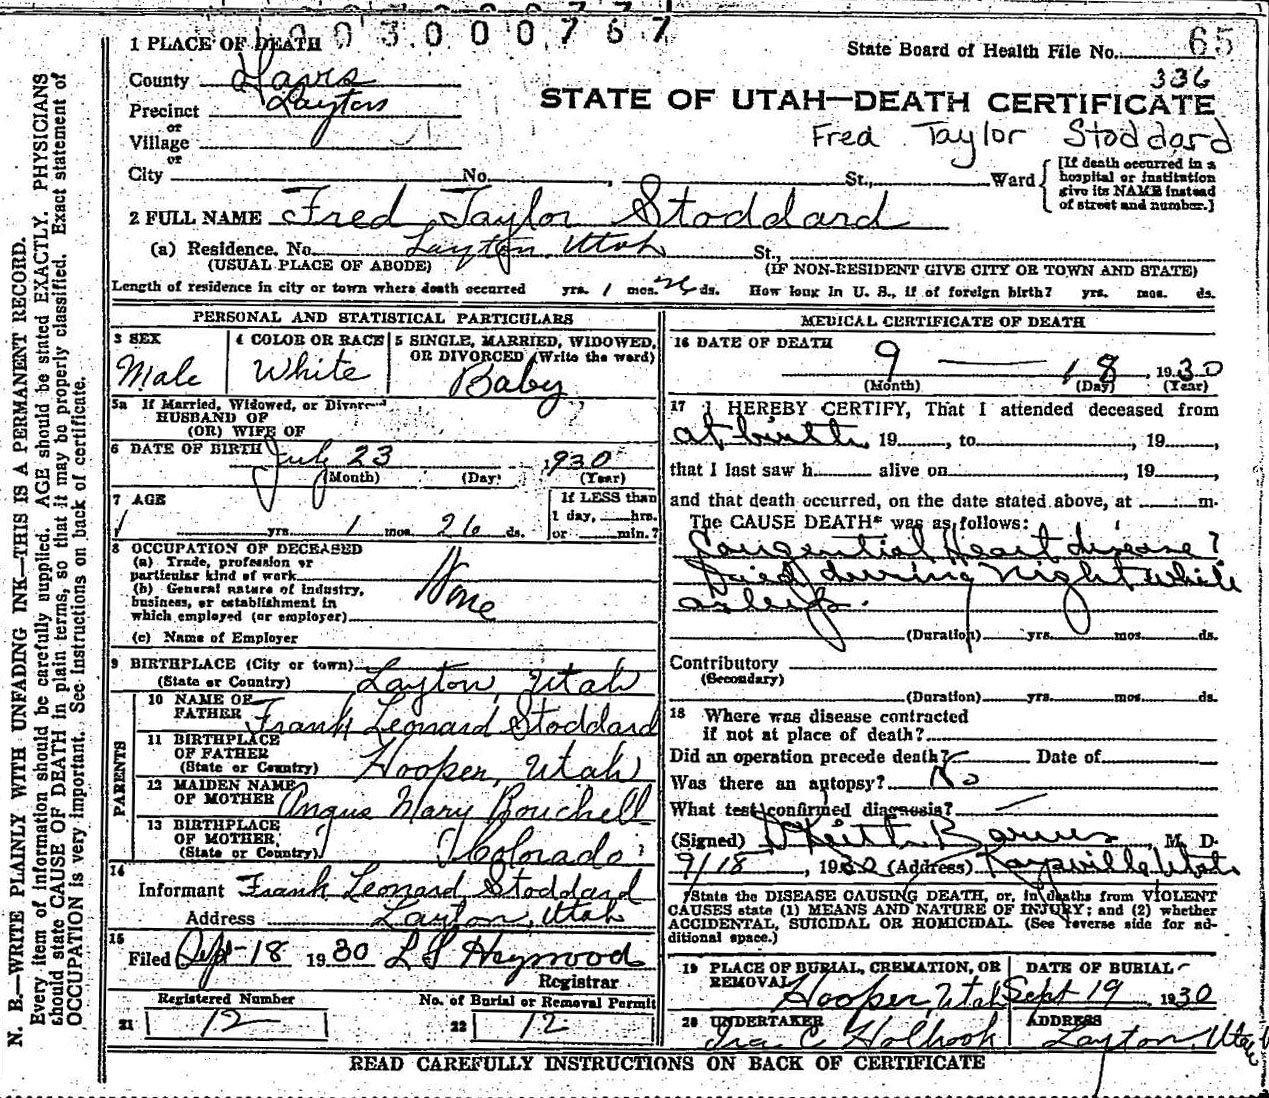 003000767
1 PLACE OF DEATH
State Board of Health File No. 65
336
County Davis
STATE OF UTAH—DEATH CERTIFICATE
Precinct Layton
or
Village
or
Fred Taylor Stoddard
City No. , St., Ward
[If death occurred in a
hospital or institution
give its NAME instead
of street and number.]
2 FULL NAME Fred Taylor Stoddard
(a) Residence. No. Layton, Utah St.,
(USUAL PLACE OF ABODE) (IF NON-RESIDENT GIVE CITY OR TOWN AND STATE)
Length of residence in city or town where death occurred yrs. 1 mos. 26 ds. How long in U. S., if of foreign birth? yrs. mos. ds.
PERSONAL AND STATISTICAL PARTICULARS
3 SEX
Male
4 COLOR OR RACE
White
5 SINGLE, MARRIED, WIDOWED,
OR DIVORCED (Write the word)
Baby
5a If Married, Widowed, or Divorced
HUSBAND OF
(OR) WIFE OF
6 DATE OF BIRTH July 23 1930
(Month) (Day) (Year)
7 AGE
yrs. 1 mos. 26 ds.
If LESS than
1 day, hrs.
or min.?
8 OCCUPATION OF DECEASED
(a) Trade, profession or
particular kind of work
(b) General nature of industry,
business, or establishment in
which employed (or employer)
None
(c) Name of Employer
9 BIRTHPLACE (City or town)
(State or Country) Layton, Utah
PARENTS
10 NAME OF
FATHER Frank Leonard Stoddard
11 BIRTHPLACE
OF FATHER
(State or Country) Hooper, Utah
12 MAIDEN NAME
OF MOTHER Angus Mary Bouchell
13 BIRTHPLACE
OF MOTHER,
(State or Country) Colorado
14
Informant Frank Leonard Stoddard
Address Layton, Utah
15
Filed Sept-18 1930 L S Heywood
Registrar
Registered Number
21 12
No. of Burial or Removal Permit
22 12
MEDICAL CERTIFICATE OF DEATH
16 DATE OF DEATH
9 — 18, 1930
(Month) (Day) (Year)
17 I HEREBY CERTIFY, That I attended deceased from
at birth, 19 , to , 19 ,
that I last saw h alive on , 19
and that death occurred, on the date stated above, at m.
The CAUSE DEATH* was as follows:
Congential Heart disease?
Died during night while
asleep.
(Duration) yrs. mos. ds.
Contributory
(Secondary)
(Duration) yrs. mos. ds.
18 Where was disease contracted
if not at place of death?
Did an operation precede death? Date of
Was there an autopsy? No
What test confirmed diagnosis?
(Signed) Keith Barnes, M. D.
9/18, 1930 (Address) Kaysville Utah
*State the DISEASE CAUSING DEATH, or, in deaths from VIOLENT
CAUSES state (1) MEANS AND NATURE OF INJURY; and (2) whether
ACCIDENTAL, SUICIDAL OR HOMICIDAL. (See reverse side for ad-
ditional space.)
19 PLACE OF BURIAL, CREMATION, OR
REMOVAL Hooper, Utah
DATE OF BURIAL
Sept 19 1930
20 UNDERTAKER
Ira C Holbrook
ADDRESS
Layton, Utah
READ CAREFULLY INSTRUCTIONS ON BACK OF CERTIFICATE
N. B.—WRITE PLAINLY WITH UNFADING INK—THIS IS A PERMANENT RECORD.
Every item of information should be carefully supplied. AGE should be stated EXACTLY. PHYSICIANS
should state CAUSE OF DEATH in plain terms, so that it may be properly classified. Exact statement of
OCCUPATION is very important. See instructions on back of certificate.